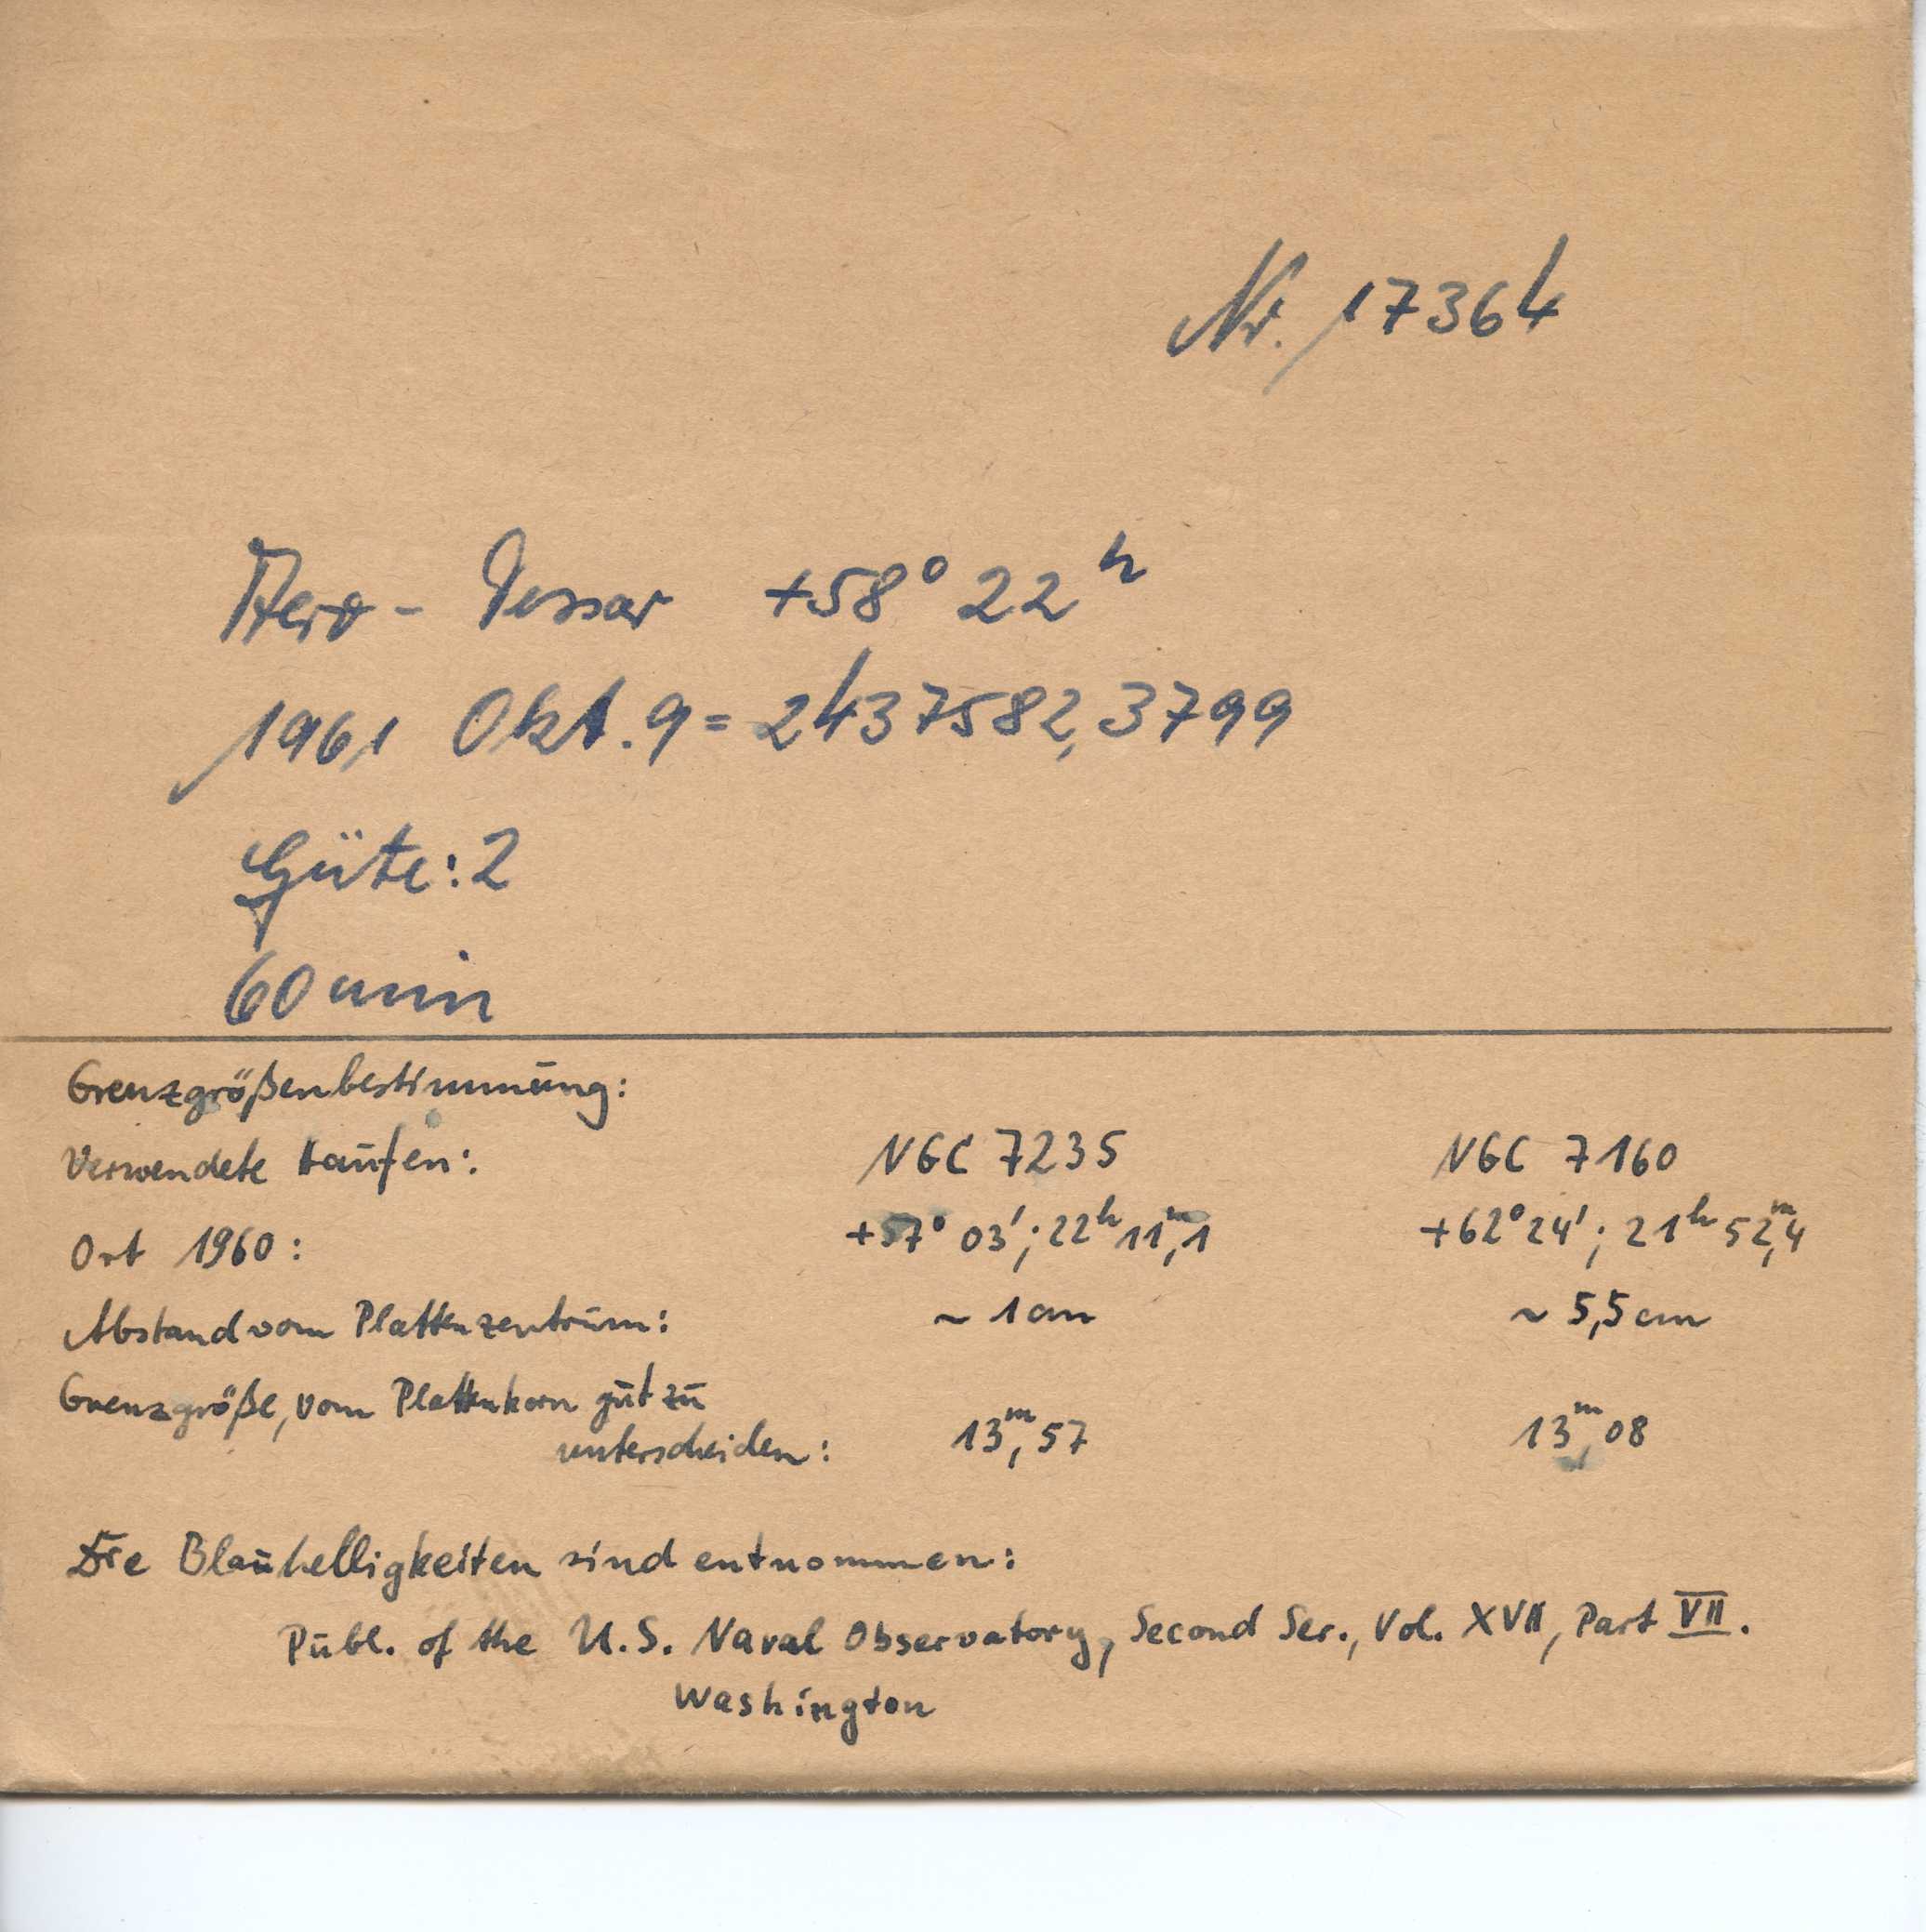 Nr. 17364
Aero-Tessar +58° 22ʰ
1961 Okt. 9 = 2437582,3799
Güte: 2
60 min
Grenzgrößenbestimmung:
Verwendete Haufen: NGC 7235 NGC 7160
Ort 1960: +57° 03'; 22ʰ 11ᵐ,1 +62° 24'; 21ʰ 52ᵐ,4
Abstand vom Plattenzentrum: ~ 1 cm ~ 5,5 cm
Grenzgröße, vom Plattenkorn gut zu
unterscheiden: 13ᵐ,57 13ᵐ,08
Die Blauhelligkeiten sind entnommen:
Publ. of the U.S. Naval Observatory, Second Ser., Vol. XVII, Part VII.
Washington